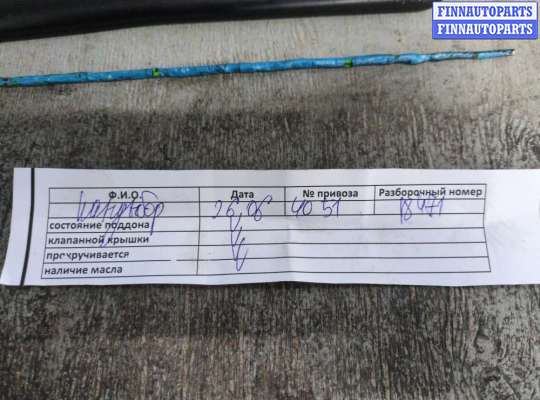 FINNAUTOPARTS
FINNAUTOPARTS
Ф.И.О. Дата № привоза Разборочный номер
26.06 40 51 18471
состояние поддона
клапанной крышки
прокручивается
наличие масла